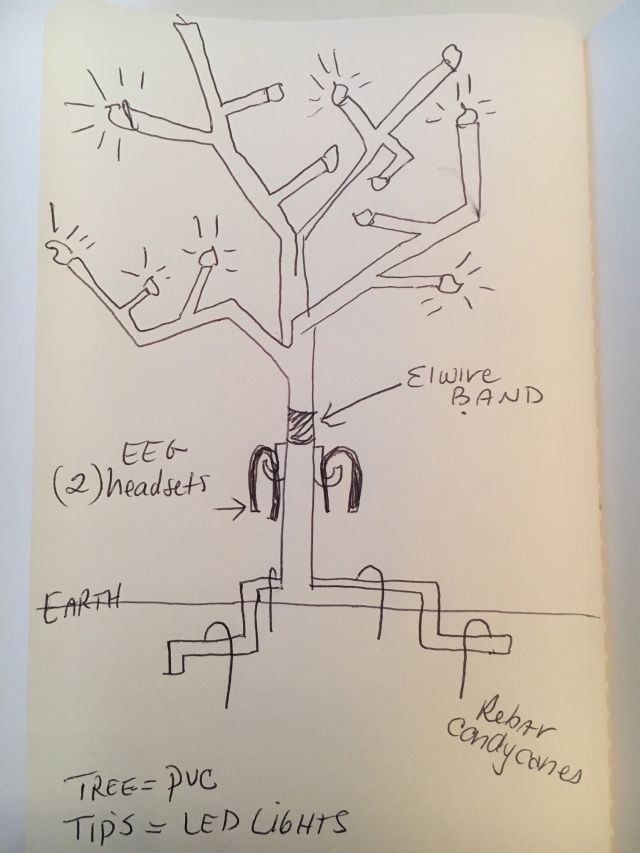 Elwire
BAND
EEG
(2) headsets
EARTH
Rebar
candycanes
TREE = PVC
TIPS = LED LIGHTS